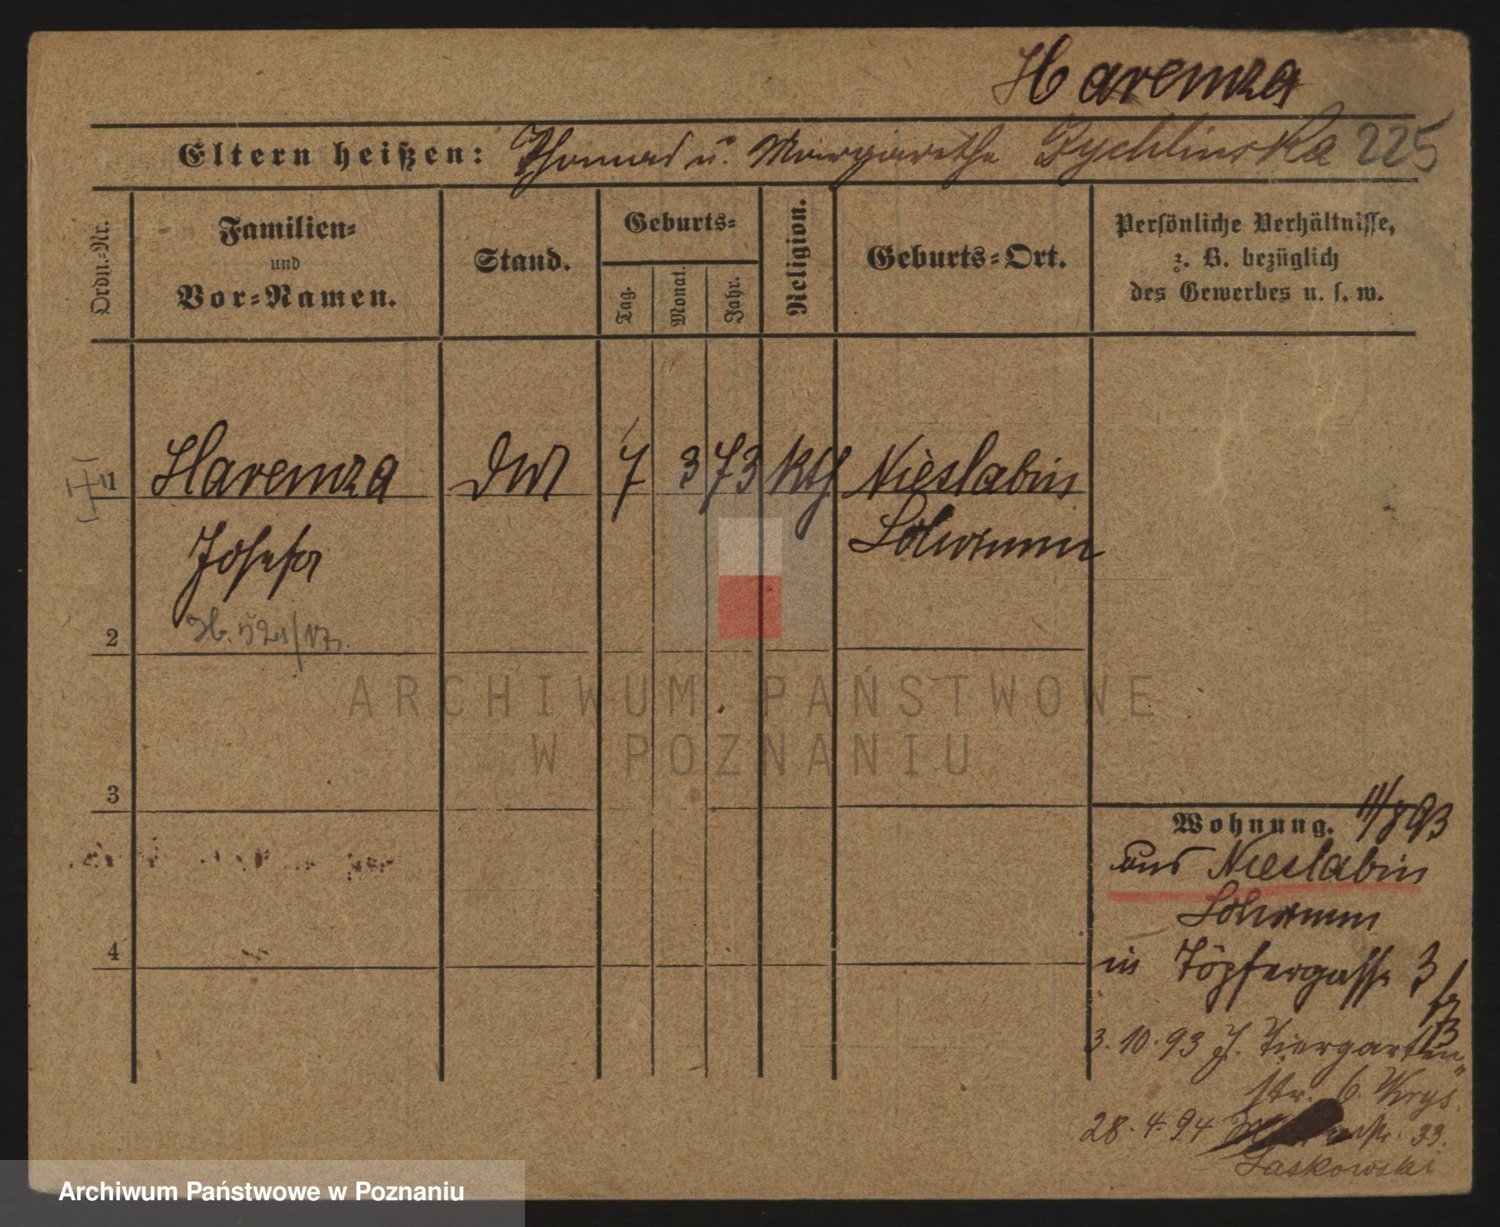 Haremza
Eltern heißen: Thomas u. Margarethe Rychlinska 225
Ordn.-Nr.
Familien-
und
Vor-Namen.
Stand.
Geburts-
Tag.
Monat.
Jahr.
Religion.
Geburts-Ort.
Persönliche Verhältnisse,
z. B. bezüglich
des Gewerbes u. s. w.
1 Haremza 7 3 73 kth Nieslabin
Josefa Schrimm
2
ARCHIWUM PAŃSTWOWE
W POZNANIU
3
Wohnung. 11/8 93
aus Nieslabin
Schrimm
in Töpfergasse 3
4
3.10.93 J. Tiergarten
str. 6
28.4.94 33.
Laskowski
Archiwum Państwowe w Poznaniu